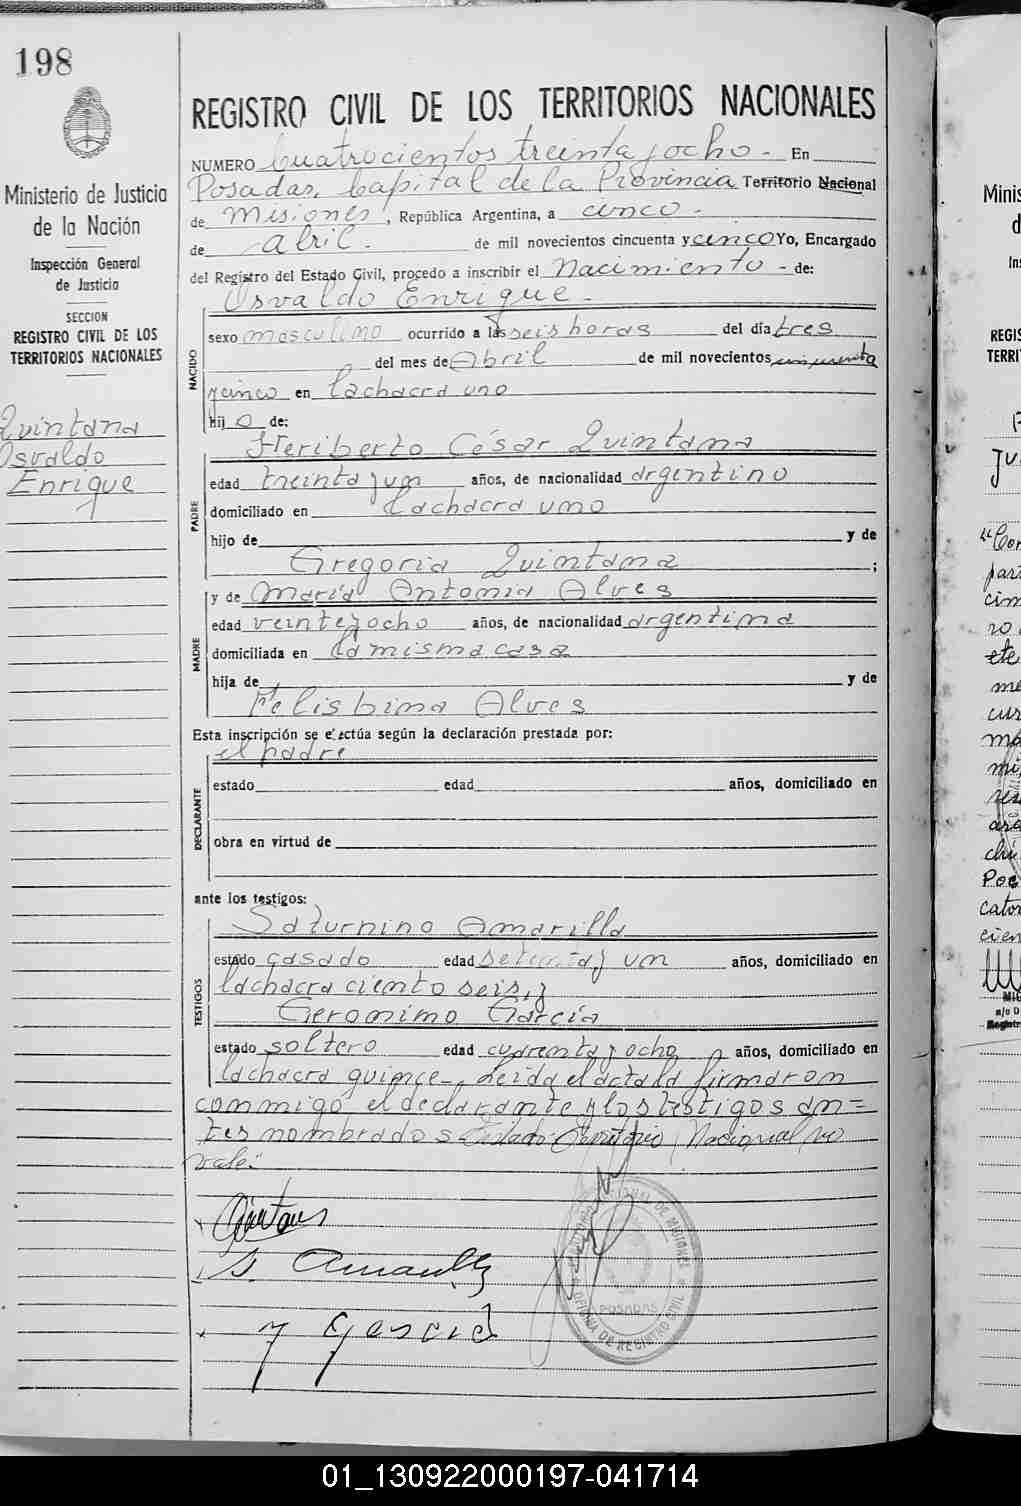 198
Ministerio de Justicia
de la Nación
Inspección General
de Justicia
SECCION
REGISTRO CIVIL DE LOS
TERRITORIOS NACIONALES
Quintana
Osvaldo
Enrique
REGISTRO CIVIL DE LOS TERRITORIOS NACIONALES
NUMERO Cuatrocientos treinta y ocho - En
Posadas, Capital de la Provincia Territorio Nacional
de Misiones, República Argentina, a cinco -
de abril - de mil novecientos cincuenta y cinco Yo, Encargado
del Registro del Estado Civil, procedo a inscribir el Nacimiento - de:
Osvaldo Enrique -
NACIDO
sexo masculino ocurrido a las seis horas del día tres
del mes de Abril de mil novecientos cincuenta
y cinco en la chacra uno
hijo de:
PADRE
Heriberto César Quintana
edad treinta y un años, de nacionalidad argentino
domiciliado en la chacra uno
hijo de y de
Gregoria Quintana ;
MADRE
y de María Antonia Alves
edad veinte y ocho años, de nacionalidad argentina
domiciliada en la misma casa
hija de y de
Felisbina Alves
Esta inscripción se efectúa según la declaración prestada por:
DECLARANTE
el padre
estado edad años, domiciliado en
obra en virtud de
ante los testigos:
TESTIGOS
Saturnino Amarilla
estado casado edad setenta y un años, domiciliado en
la chacra ciento seis, y
Geronimo Garcia
estado soltero edad cuarenta y ocho años, domiciliado en
la chacra quince -, Leida el acta la firmaron
conmigo, el declarante y los testigos an=
tes nombrados Testado: Territorio Nacional no
vale:
Quintana
S. Amarilla
y Garcia
OFICINA DE REGISTRO CIVIL
POSADAS
Minis
d
In
REGIS
TERRI
Ju
"Con
par
cim
ro
me
cur
ma
mi
chu
Poe
cato
cien
MIG
a/c D
Registr
01_130922000197-041714